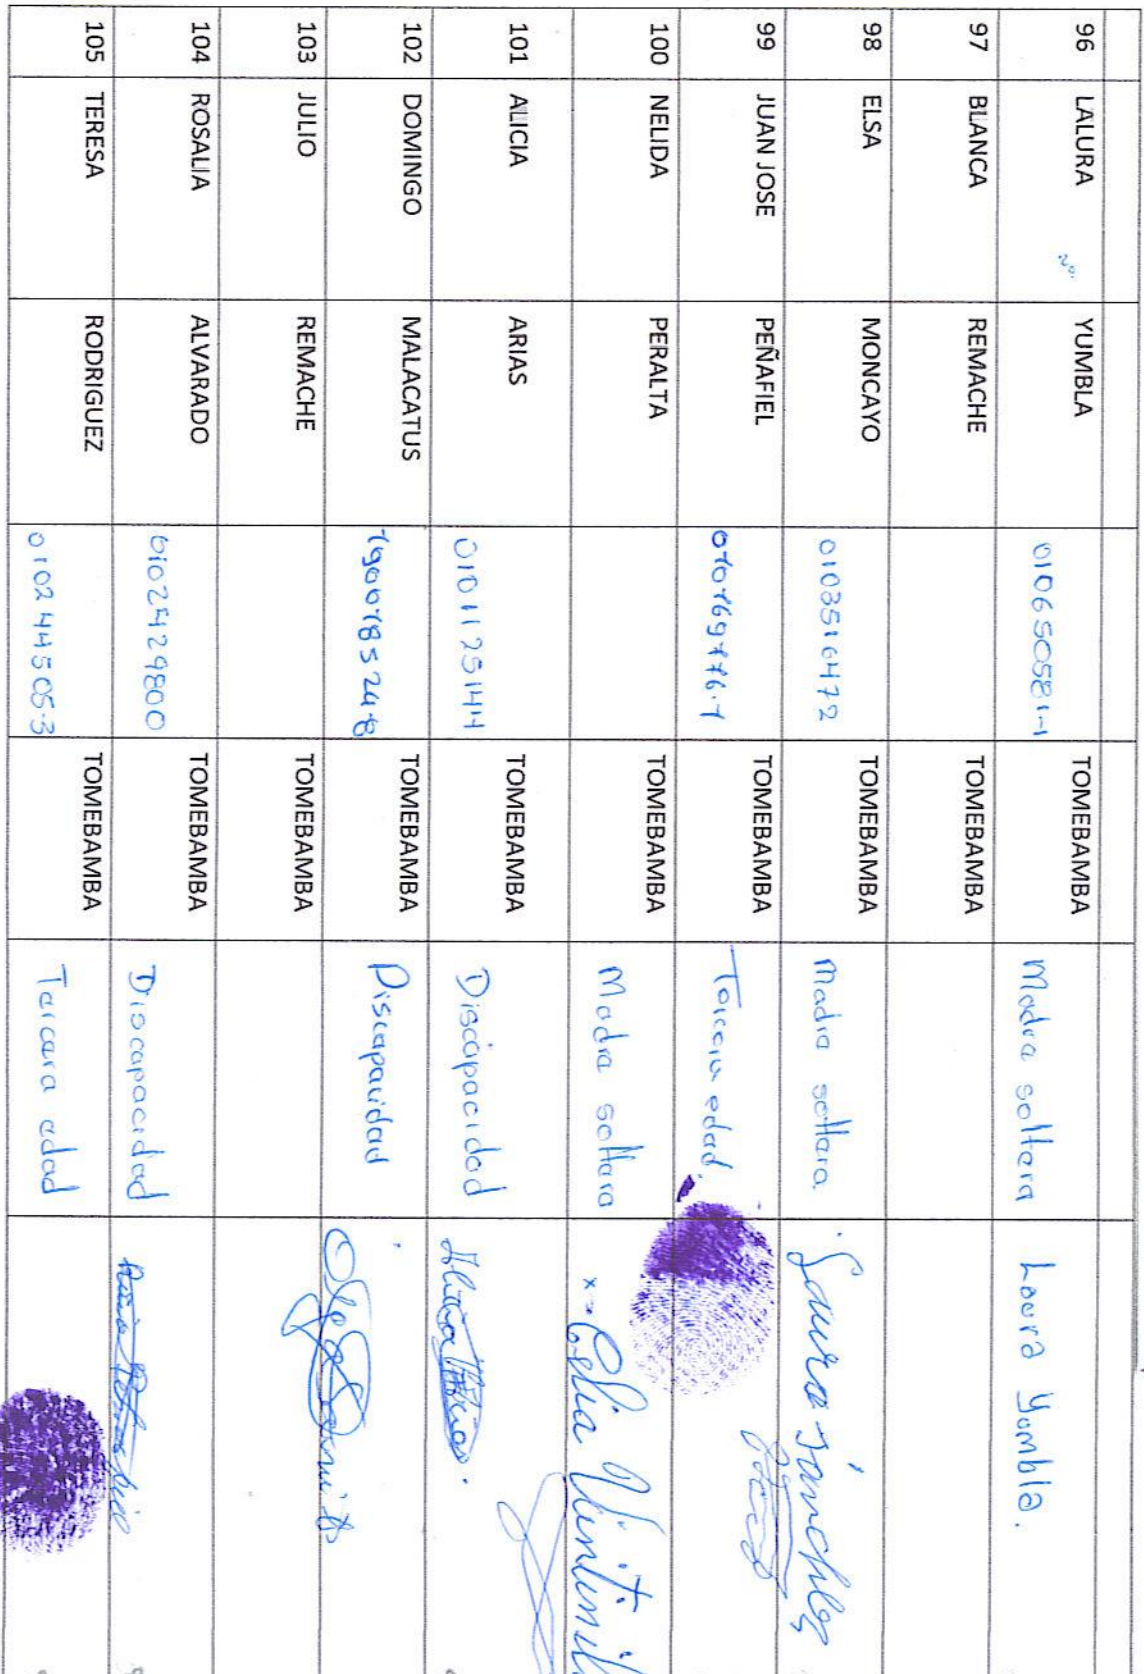 96 LALURA YUMBLA 010650581-1 TOMEBAMBA Madre soltera Laura Yumbla.
97 BLANCA REMACHE TOMEBAMBA
98 ELSA MONCAYO 0103516472 TOMEBAMBA Madre soltera Laura Sánchez
99 JUAN JOSE PEÑAFIEL TOMEBAMBA Tercera edad.
100 NELIDA PERALTA TOMEBAMBA Madre soltera
101 ALICIA ARIAS 0101125144 TOMEBAMBA Discapacidad Alicia Arias.
102 DOMINGO MALACATUS TOMEBAMBA Discapacidad
103 JULIO REMACHE TOMEBAMBA
104 ROSALIA ALVARADO 0102429800 TOMEBAMBA Discapacidad
105 TERESA RODRIGUEZ 010244505-3 TOMEBAMBA Tercera edad